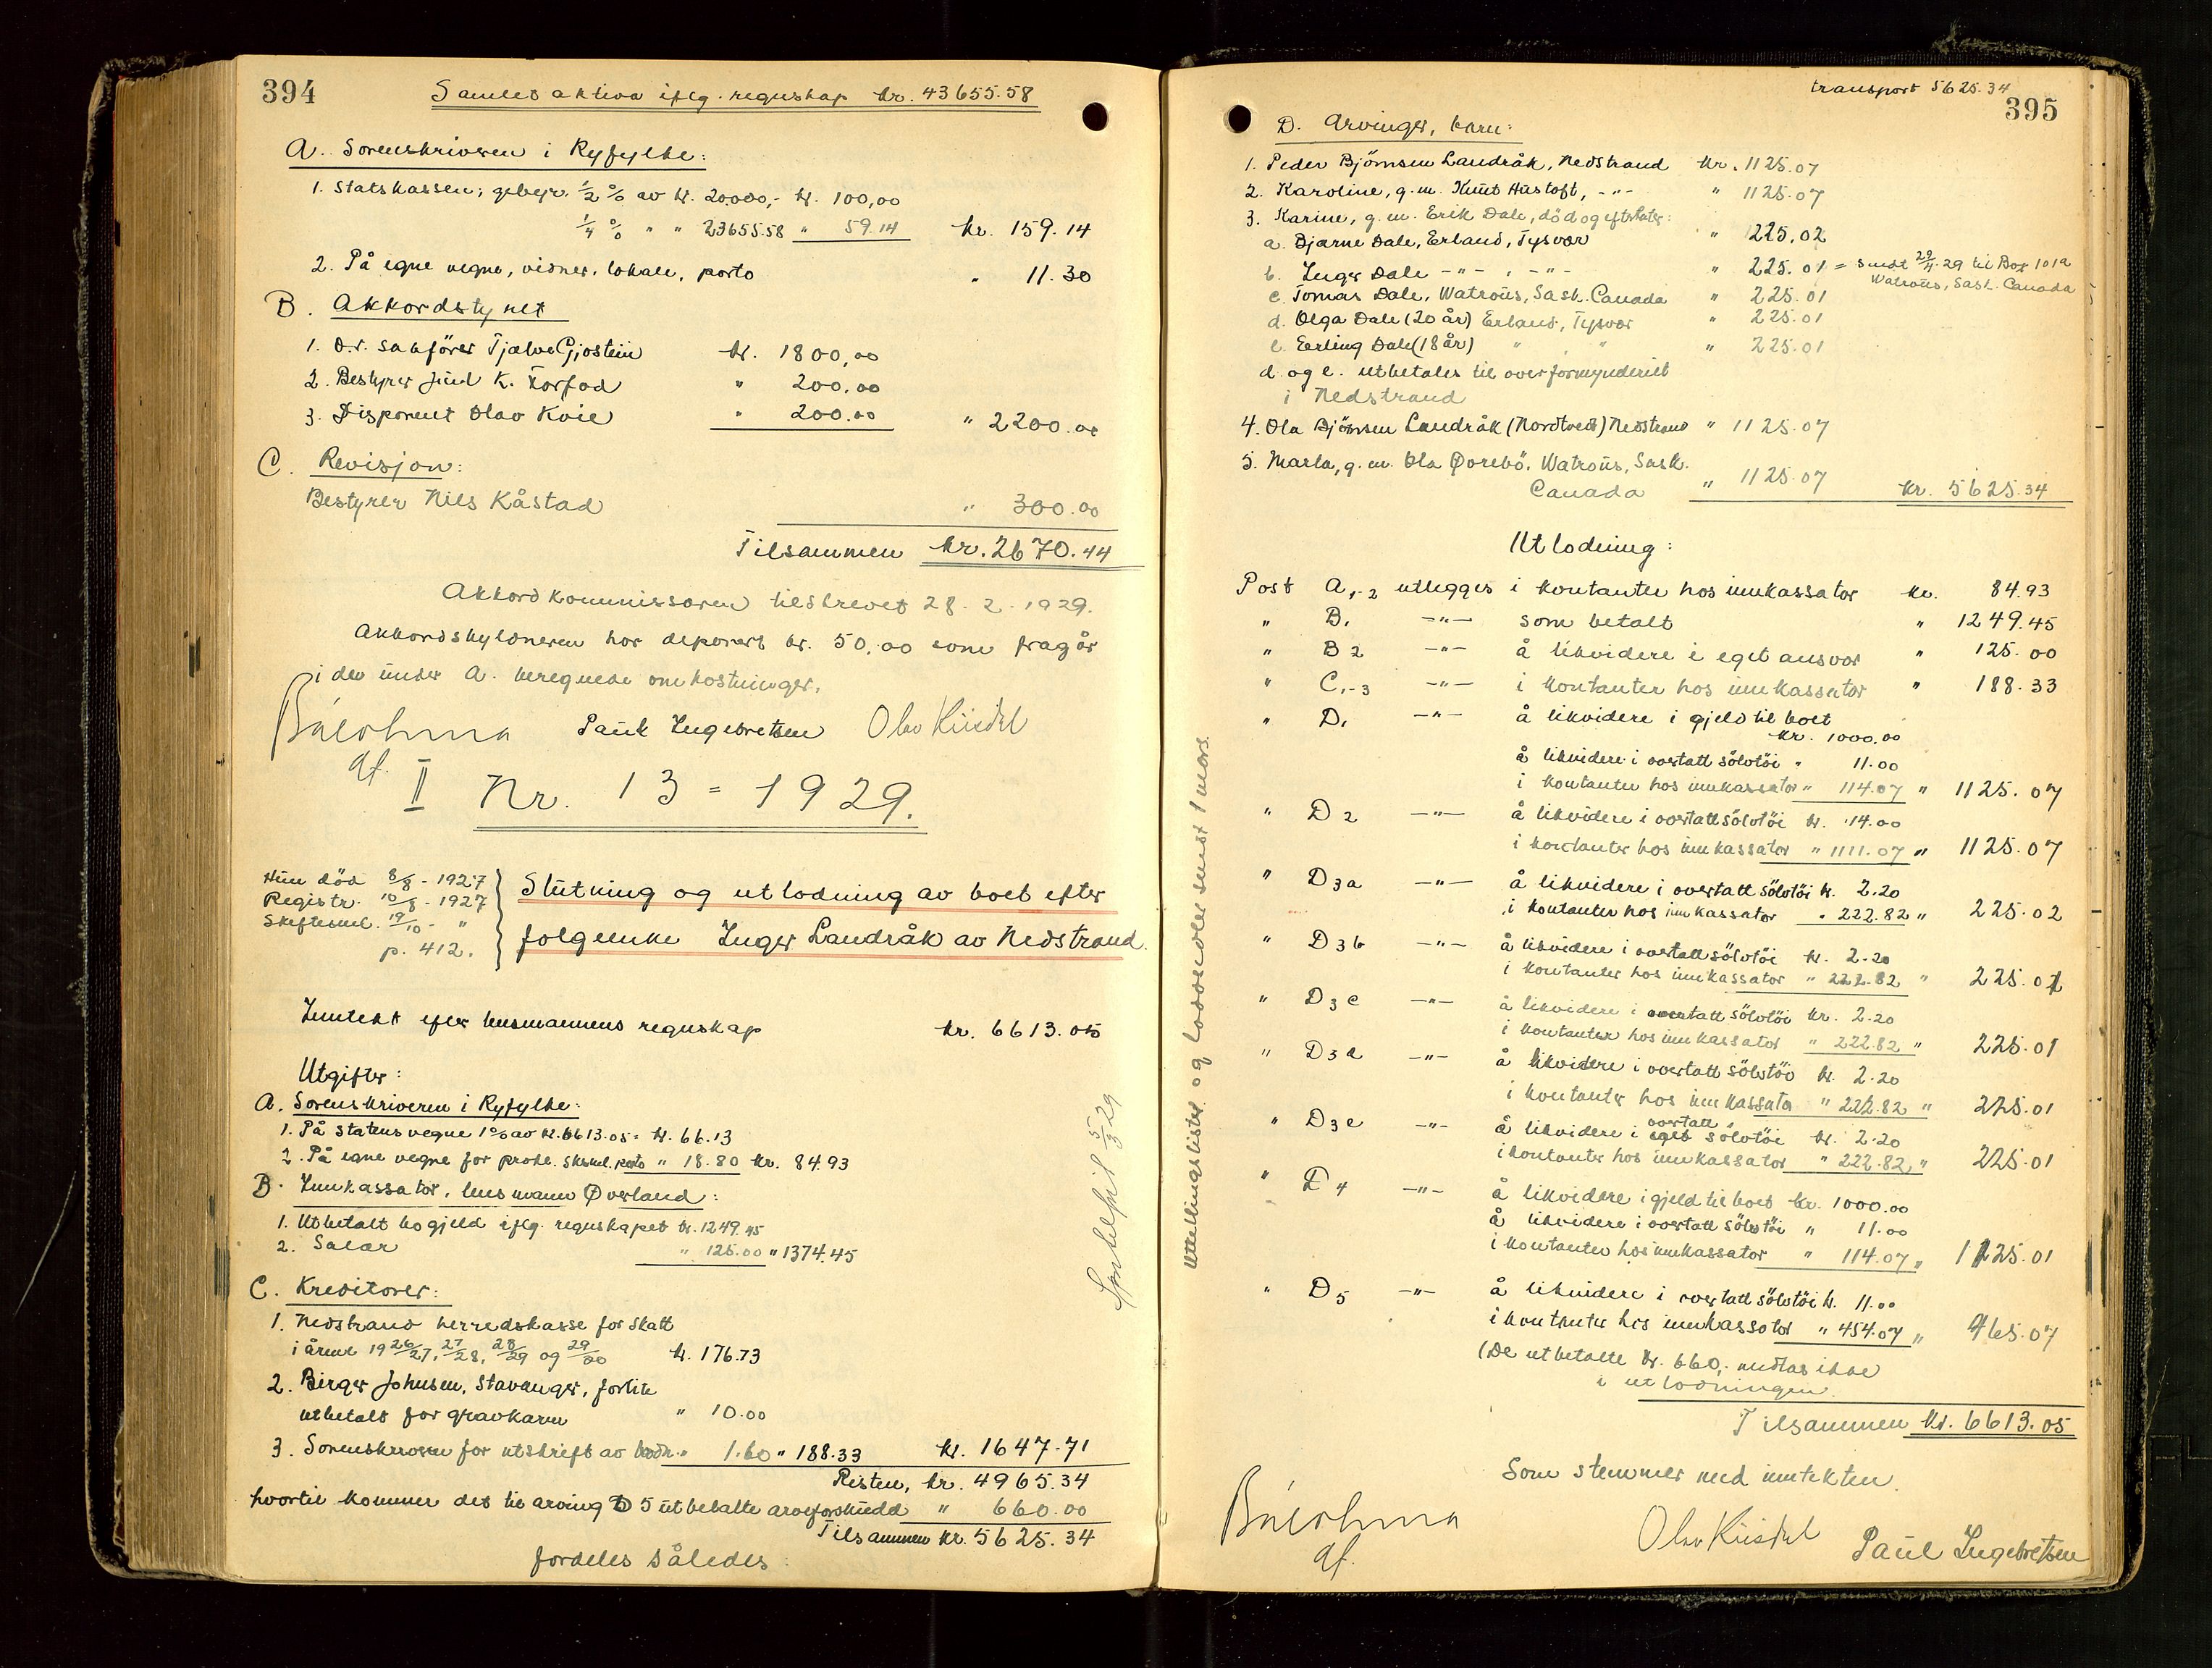 394
Samlet aktiva iflg. regnskap kr. 43655.58
A. Sorenskriveren i Ryfylke:
1. Statskassen, gebyr. 1/2 % av kr. 20000,- kr. 100,00
1/4 % " " 23655.58 " 59.14 kr. 159.14
2. På egne vegne, vidner, lokale, porto " 11.30
B. Akkordstyret
1. O.r. sakfører Tjælve Gjøstein kr. 1800,00
2. Bestyrer Juul K. Torfod " 200,00
3. Disponent Olav Kvie " 200.00 " 2200.00
C. Revisjon:
Bestyrer Nils Kåstad " 300.00
Tilsammen kr. 2670.44
Akkordkommissæren tilskrevet 28-2-1929.
Akkordskyldneren har deponert kr. 50,00 som fragår
i de under A. beregnede omkostninger.
Paul Ingebretsen
qf.
II Nr. 13 = 1929.
Hun død 8/8 - 1927
Registr. 10/8 - 1927
Skiftesaml. 19/10 - "
p. 412.
Slutning og utlodning av boet efter
følgeenke Inger Landråk av Nedstrand.
Inntekt efter lensmannens regnskap kr. 6613.05
Utgifter:
A. Sorenskriveren i Ryfylke:
1. På statens vegne 1% av kr. 6613.05 = kr. 66.13
2. På egne vegne for prokl. skssml. porto " 18.80 kr. 84.93
B. Innkassator, lensmann Øverland:
1. Utbetalt bogjeld iflg. regnskapet kr. 1249.45
2. Salær " 125.00 " 1374.45
C. Kreditorer:
1. Nedstrand herredskasse for skatt
i årene 1926/27, 27/28, 28/29 og 29/30 kr. 176.73
2. Birger Johnsen, Stavanger, for lite
utbetalt for gravkarm " 10.00
3. Sorenskriveren for utskrift av " 1.60 " 188.33 kr. 1647.71
Resten, kr. 4965.34
hvortil kommer det til arving D 5 utbetalte arveforskudd " 660.00
Tilsammen kr. 5625.34
fordeles således:
5/3 29
transport 5625.34
395
D. Arvinger, barn:
1. Peder Bjørnsen Landråk, Nedstrand kr. 1125.07
2. Karoline, g.m. Knut Austoft, -"- " 1125.07
3. Karine, g.m. Erik Dale, død og efterlater:
a. Bjarne Dale, Erland, Tysvær " 225.02
b. Inger Dale -"- , -"- " 225.01 = sendt 29/4-29 til Box 101a
Watrous, Sask. Canada
c. Tomas Dale, Watrous, Sask. Canada " 225.01
d. Olga Dale (20 år) Erland, Tysvær " 225.01
e. Erling Dale (18 år) " " " 225.01
d og e. utbetales til overformynderiet
i Nedstrand
4. Ola Bjørnsen Landråk (Nordtveit) Nedstrand " 1125.07
5. Marta, g.m. Ola Ørebø, Watrous, Sask.
Canada " 1125.07 kr. 5625.34
Utlodning:
Post A 1-2 utlegges i kontanter hos innkassator kr. 84.93
" B 1 -"- som betalt " 1249.45
" B 2 -"- å likvidere i eget ansvar " 125.00
" C 1-3 -"- i kontanter hos innkassator " 188.33
" D 1 -"- å likvidere i gjeld til boet
kr. 1000.00
å likvidere i overtatt sølvtøi " 11.00
i kontanter hos innkassator " 114.07 " 1125.07
" D 2 -"- å likvidere i overtatt sølvtøi kr. 14.00
i kontanter hos innkassator " 1111.07 " 1125.07
" D 3 a -"- å likvidere i overtatt sølvtøi kr. 2.20
i kontanter hos innkassator " 222.82 " 225.02
" D 3 b -"- å likvidere i overtatt sølvtøi kr. 2.20
i kontanter hos innkassator " 222.82 " 225.01
" D 3 c -"- å likvidere i overtatt sølvtøi kr. 2.20
i kontanter hos innkassator " 222.82 " 225.01
" D 3 d -"- å likvidere i overtatt sølvtøi kr. 2.20
i kontanter hos innkassator " 222.82 " 225.01
overtatt
" D 3 e -"- å likvidere i eget sølvtøi kr. 2.20
i kontanter hos innkassator " 222.82 " 225.01
" D 4 -"- å likvidere i gjeld til boet kr. 1000.00
å likvidere i overtatt sølvtøi " 11.00
i kontanter hos innkassator " 114.07 " 1125.01
" D 5 -"- å likvidere i overtatt sølvtøi kr. 11.00
i kontanter hos innkassator " 454.07 " 465.07
(De utbetalte kr. 660,- medtas ikke
i utlodningen.
Tilsammen kr. 6613.05
Som stemmer med inntekten.
Paul Ingebretsen
qf.
Utteilingslister og loddsedler sendt 1 mars.